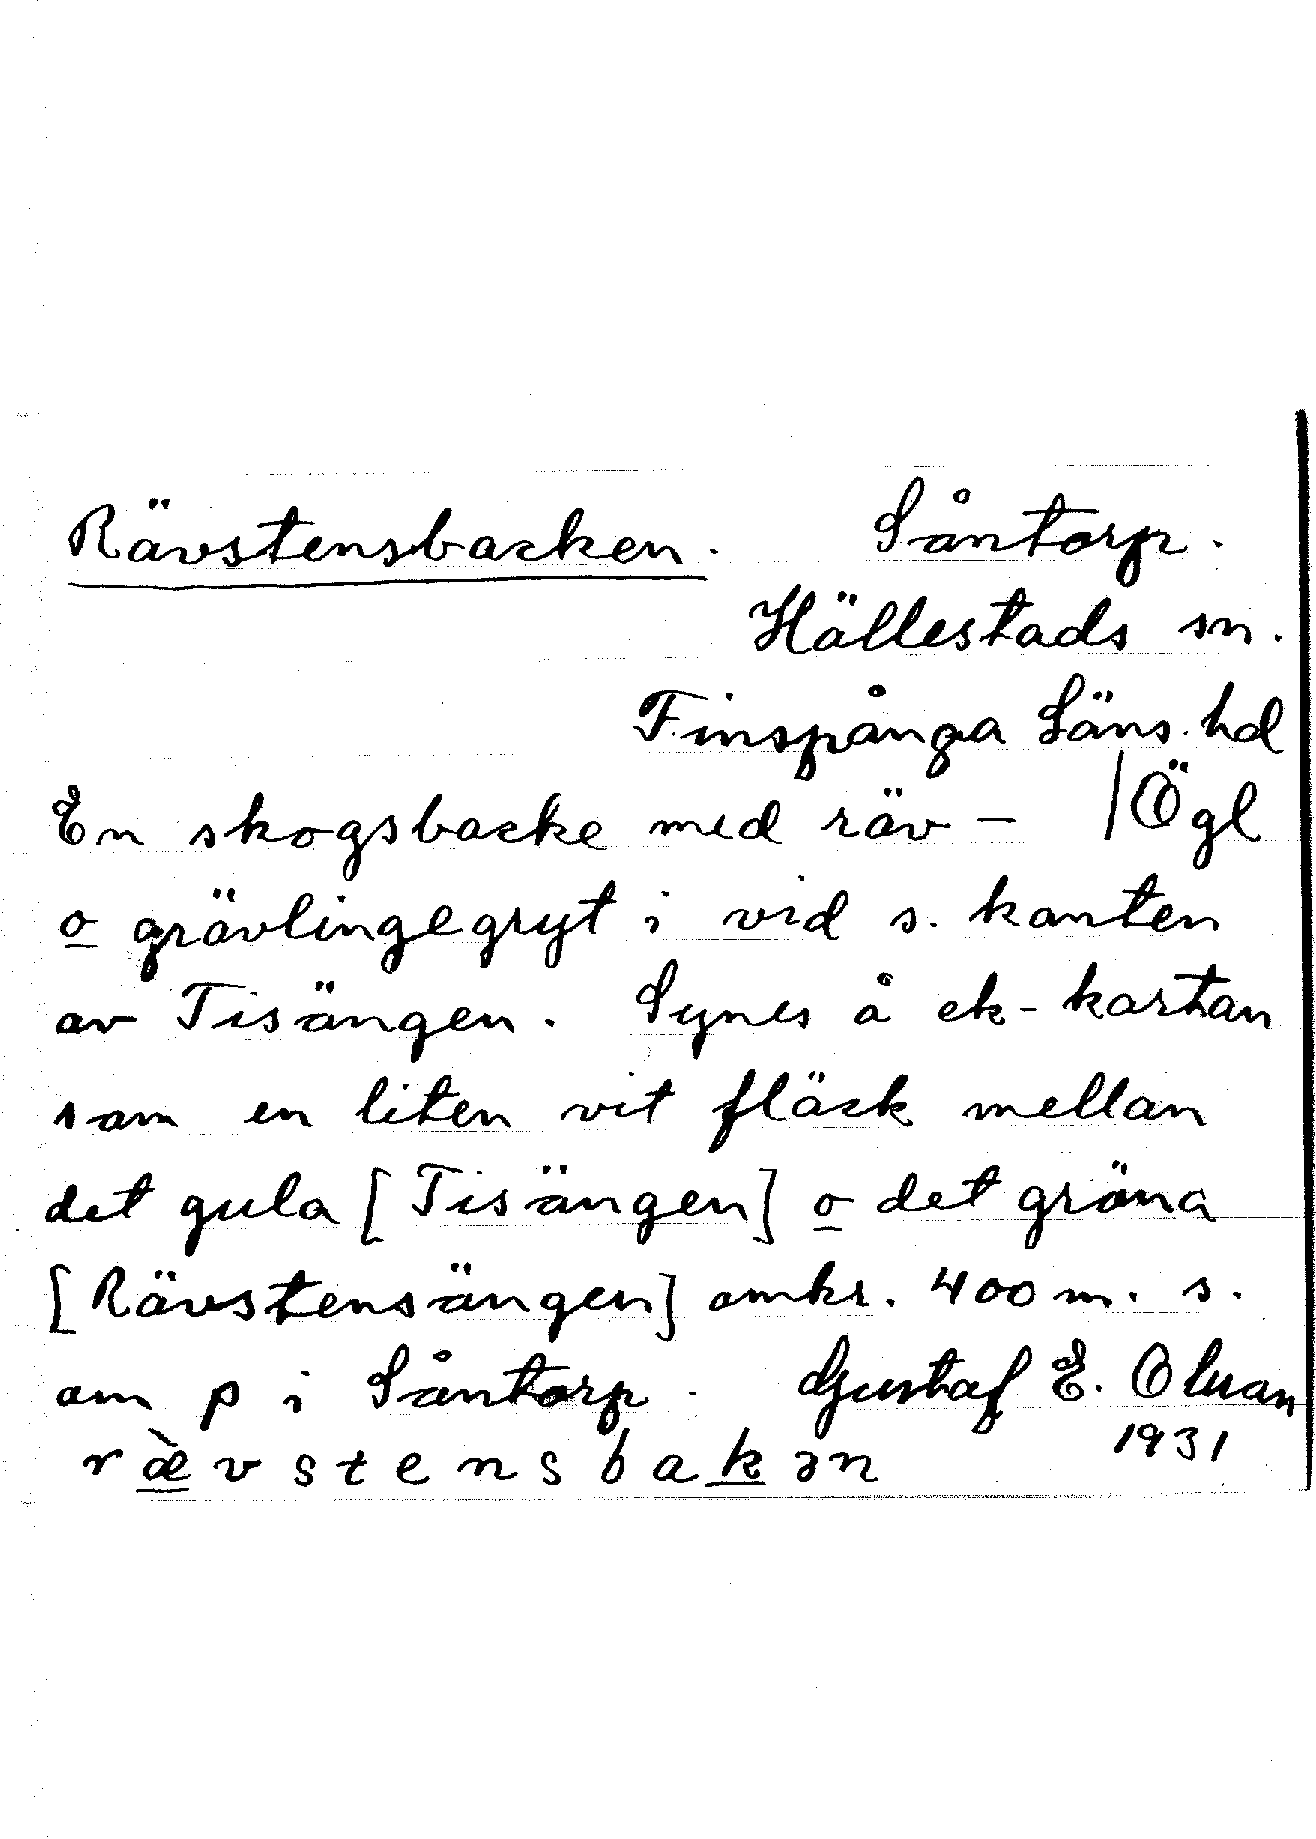 Rävstensbacken. Såntorp.
Hällestads sn.
Finspånga Läns hd
En skogsbacke med räv – /Ögl
o grävlingegryt i vid s. kanten
av Tisängen. Synes å ek-kartan
som en liten vit fläck mellan
det gula [Tisängen] o det gröna
[Rävstensängen] omkr. 400 m. s.
om p i Såntorp. Gustaf E.
1931
ræ̀vstensbakən